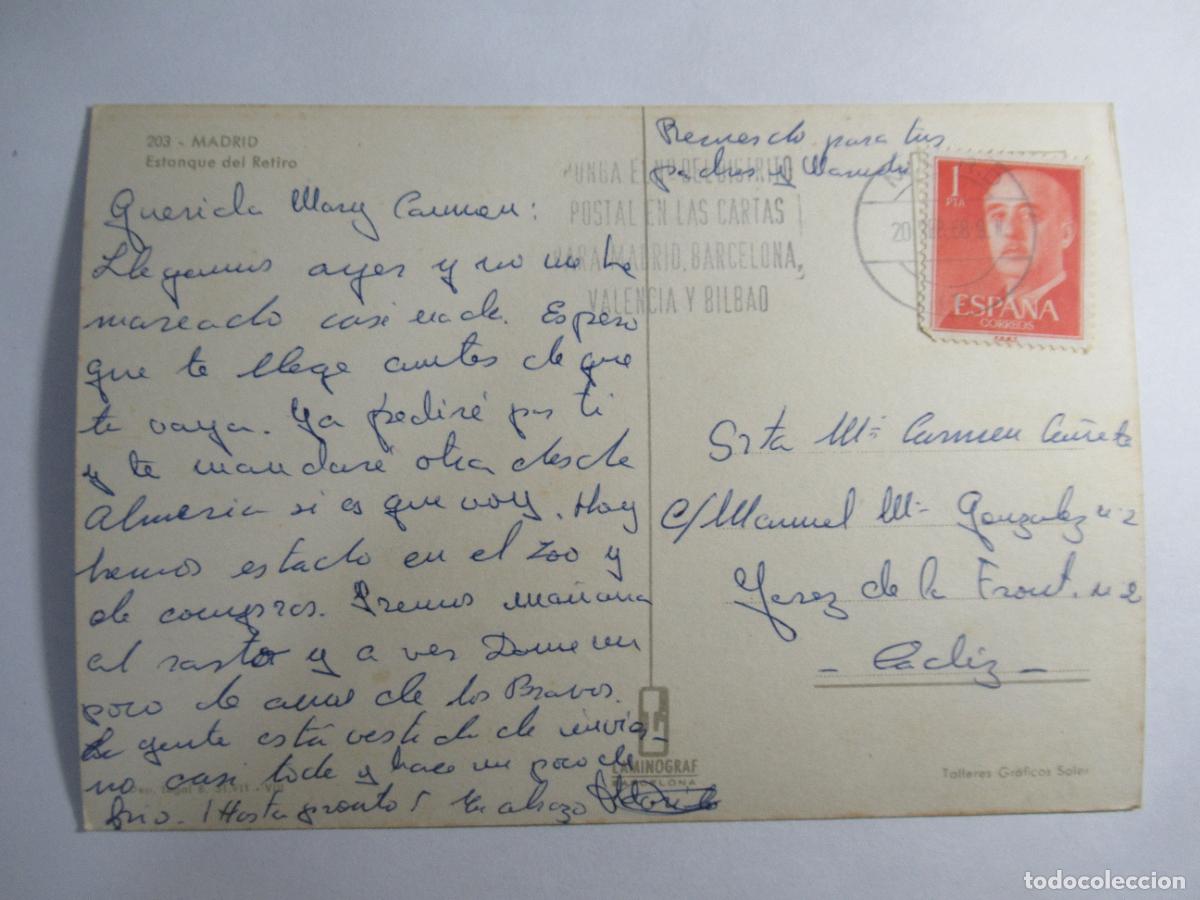 203 - MADRID
Estanque del Retiro
Querida Mary Carmen:
Llegamos ayer y no me he
mareado casi nada. Espero
que te llege antes de que
te vaya. Ya pediré por ti
y te mandaré otra desde
Almeria si es que voy. Hoy
hemos estado en el Zoo y
de compras. Iremos mañana
al rastro y a ver Dame un
poco de amor de los Bravos.
La gente está vestida de invier-
no casi toda y hace un poco de
frio. ¡Hasta pronto! Un abrazo
Recuerdo para tus
padres y
PONGA EL Nº DEL DISTRITO
POSTAL EN LAS CARTAS
PARA MADRID, BARCELONA,
VALENCIA Y BILBAO
1
PTA
ESPAÑA
CORREOS
Srta Mª Carmen Cañete
C/ Manuel Mª Gonzalez n-2
Jerez de la Front. n 2
- Cadiz -
LAMINOGRAF
BARCELONA
Talleres Gráficos Soler
Dep. Legal B. 31.VII - VIII
todocoleccion